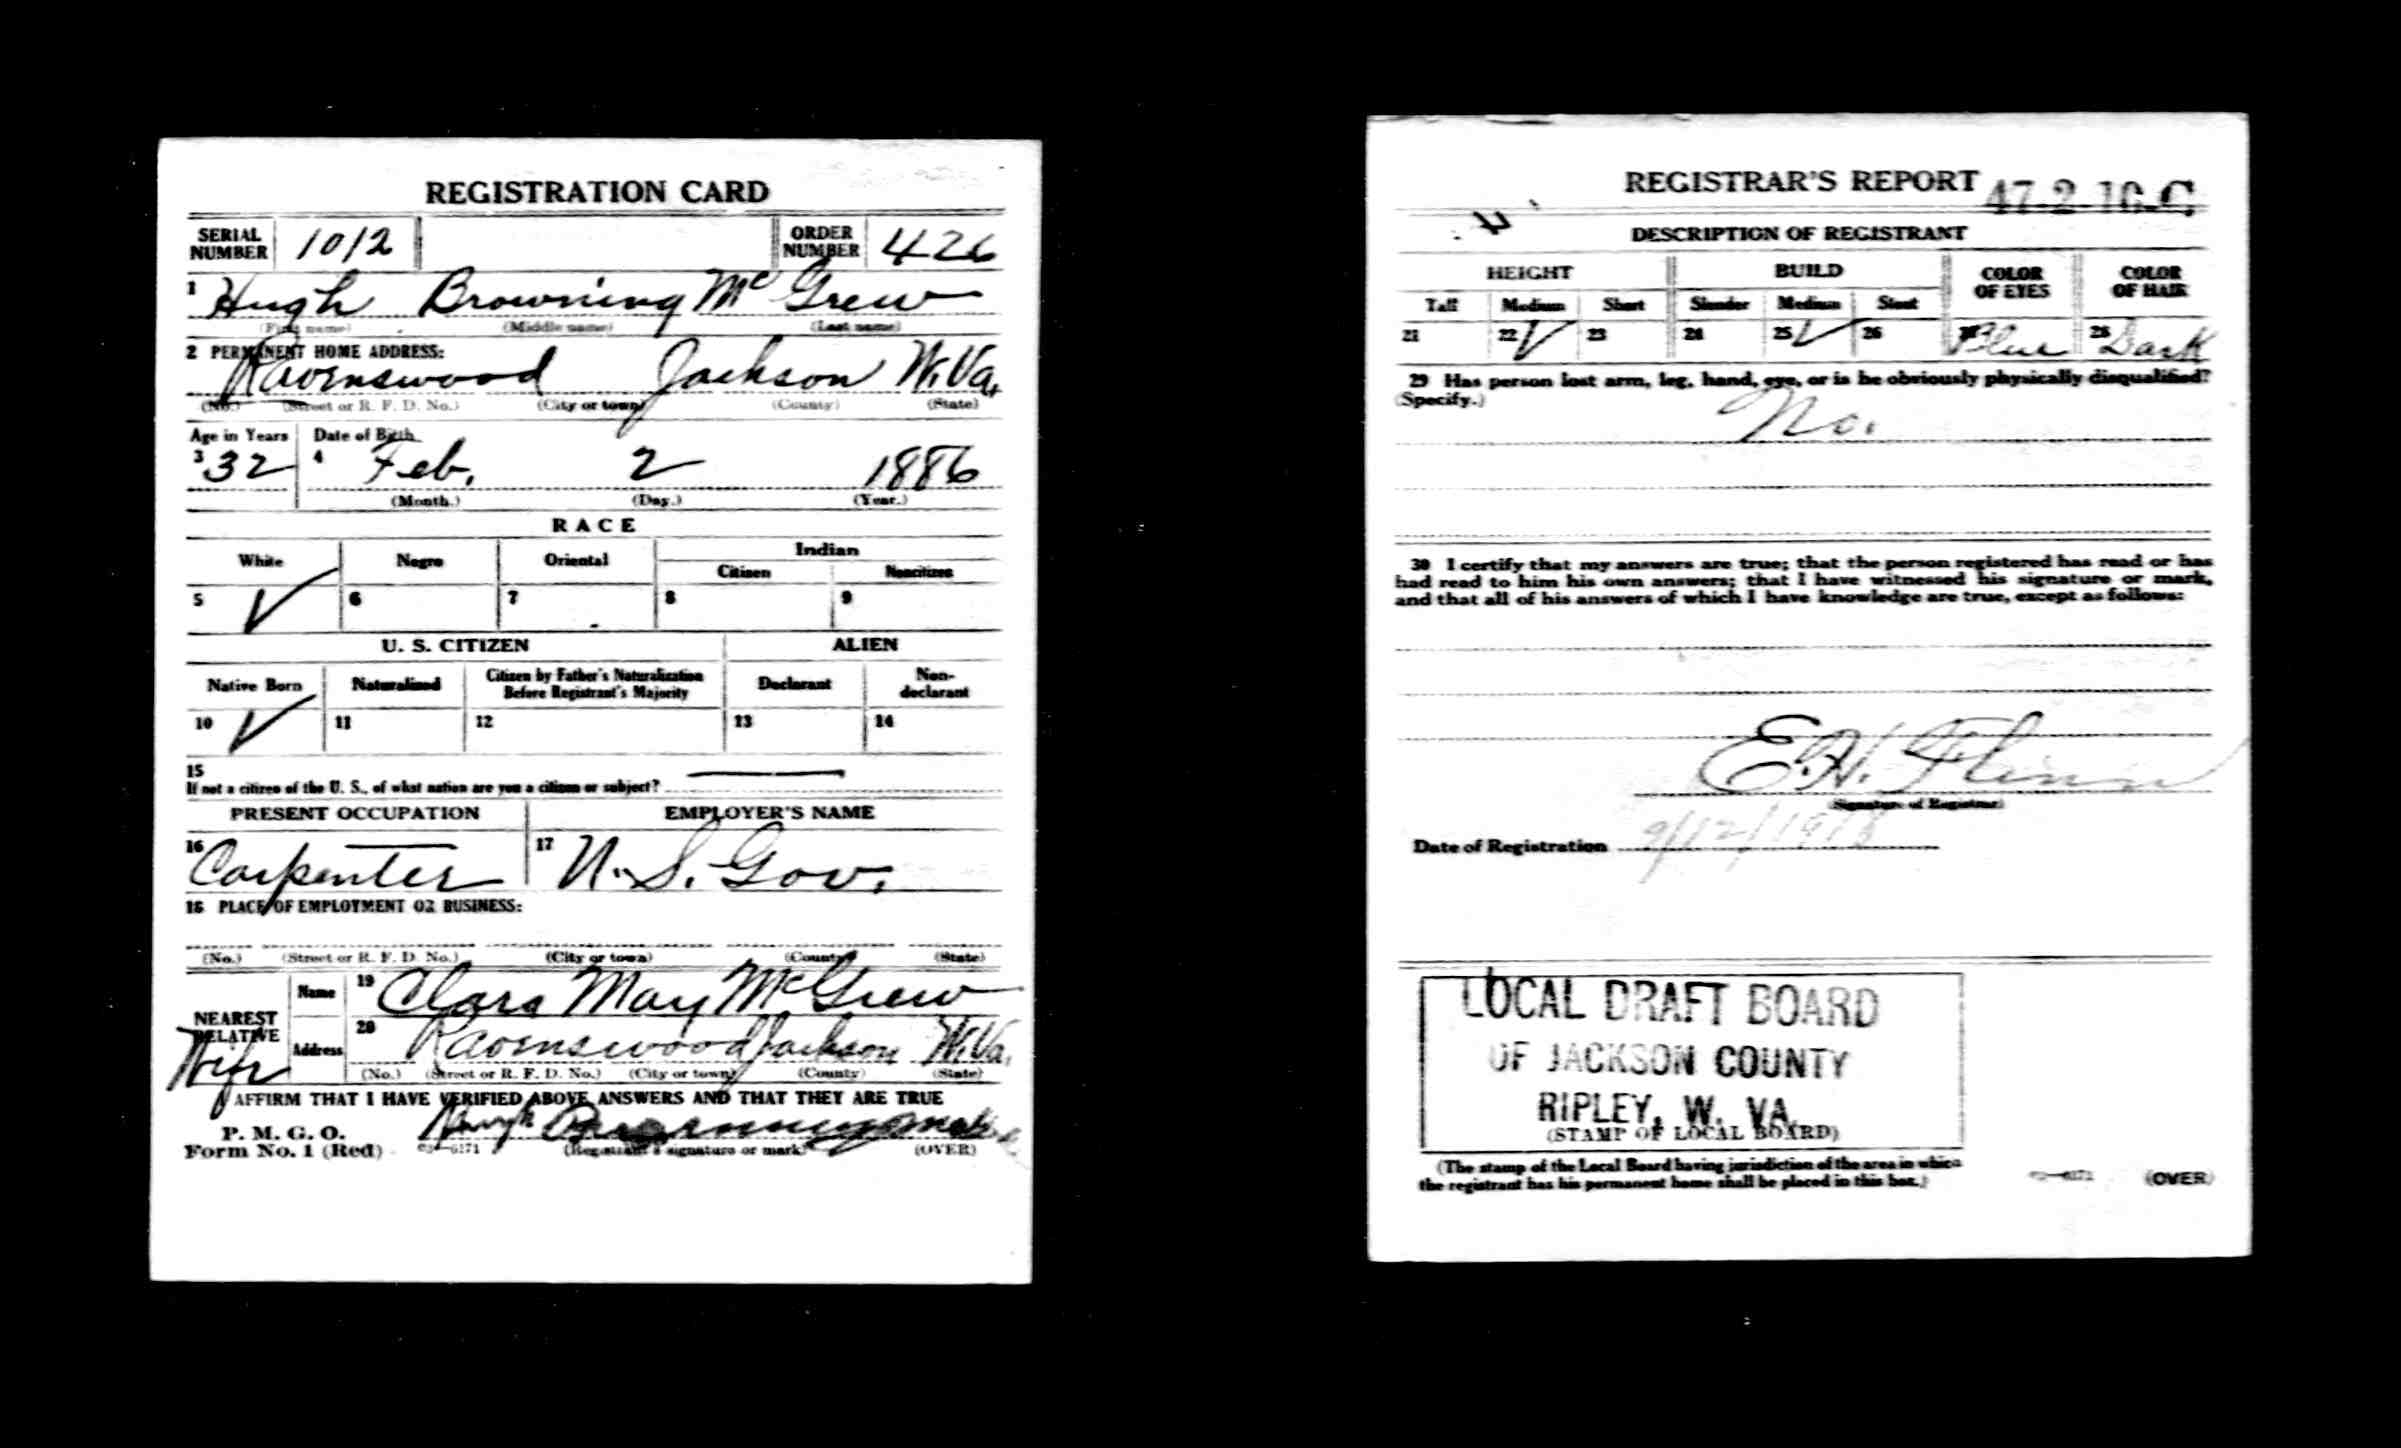 REGISTRATION CARD
SERIAL NUMBER 1012 ORDER NUMBER 426
1 Hugh Browning Mc Grew
(First name) (Middle name) (Last name)
2 PERMANENT HOME ADDRESS:
Ravenswood Jackson W.Va.
(No.) (Street or R. F. D. No.) (City or town) (County) (State)
Age in Years Date of Birth
3 32 4 Feb. 2 1886
(Month.) (Day.) (Year.)
RACE
White Negro Oriental Indian
Citizen Noncitizen
5 ✓ 6 7 8 9
U. S. CITIZEN ALIEN
Native Born Naturalized Citizen by Father's Naturalization Before Registrant's Majority Declarant Non-declarant
10 ✓ 11 12 13 14
15
If not a citizen of the U. S., of what nation are you a citizen or subject? —
PRESENT OCCUPATION EMPLOYER'S NAME
16 Carpenter 17 U.S. Gov.
18 PLACE OF EMPLOYMENT OR BUSINESS:
(No.) (Street or R. F. D. No.) (City or town) (County) (State)
NEAREST RELATIVE Name 19 Clara May McGrew
Wife Address 20 Ravenswood Jackson W.Va.
(No.) (Street or R. F. D. No.) (City or town) (County) (State)
I AFFIRM THAT I HAVE VERIFIED ABOVE ANSWERS AND THAT THEY ARE TRUE
P. M. G. O.
Form No. 1 (Red) Hugh Browning
(Registrant's signature or mark) (OVER)
REGISTRAR'S REPORT
47-2-16-C
DESCRIPTION OF REGISTRANT
HEIGHT BUILD COLOR OF EYES COLOR OF HAIR
Tall Medium Short Slender Medium Stout
21 22 ✓ 23 24 25 ✓ 26 27 Blue 28 Dark
29 Has person lost arm, leg, hand, eye, or is he obviously physically disqualified?
(Specify.) No.
30 I certify that my answers are true; that the person registered has read or has
had read to him his own answers; that I have witnessed his signature or mark,
and that all of his answers of which I have knowledge are true, except as follows:
E.H. Flinn
(Signature of Registrar)
Date of Registration 9/12/1918
LOCAL DRAFT BOARD
OF JACKSON COUNTY
RIPLEY, W. VA.
(STAMP OF LOCAL BOARD)
(The stamp of the Local Board having jurisdiction of the area in which
the registrant has his permanent home shall be placed in this box.)
(OVER)